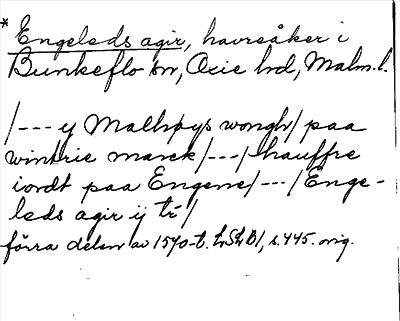 * Engeleds agir, havreåker i
Bunkeflo sn, Oxie hd, Malm.l.
/--- y Malhøys wongh/ paa
wintrie marck/---/ hauffre
iordt paa Engene/---/ Enge-
leds agir ij tr/
förra delen av 1570-t. LSt B1, s. 445. orig.